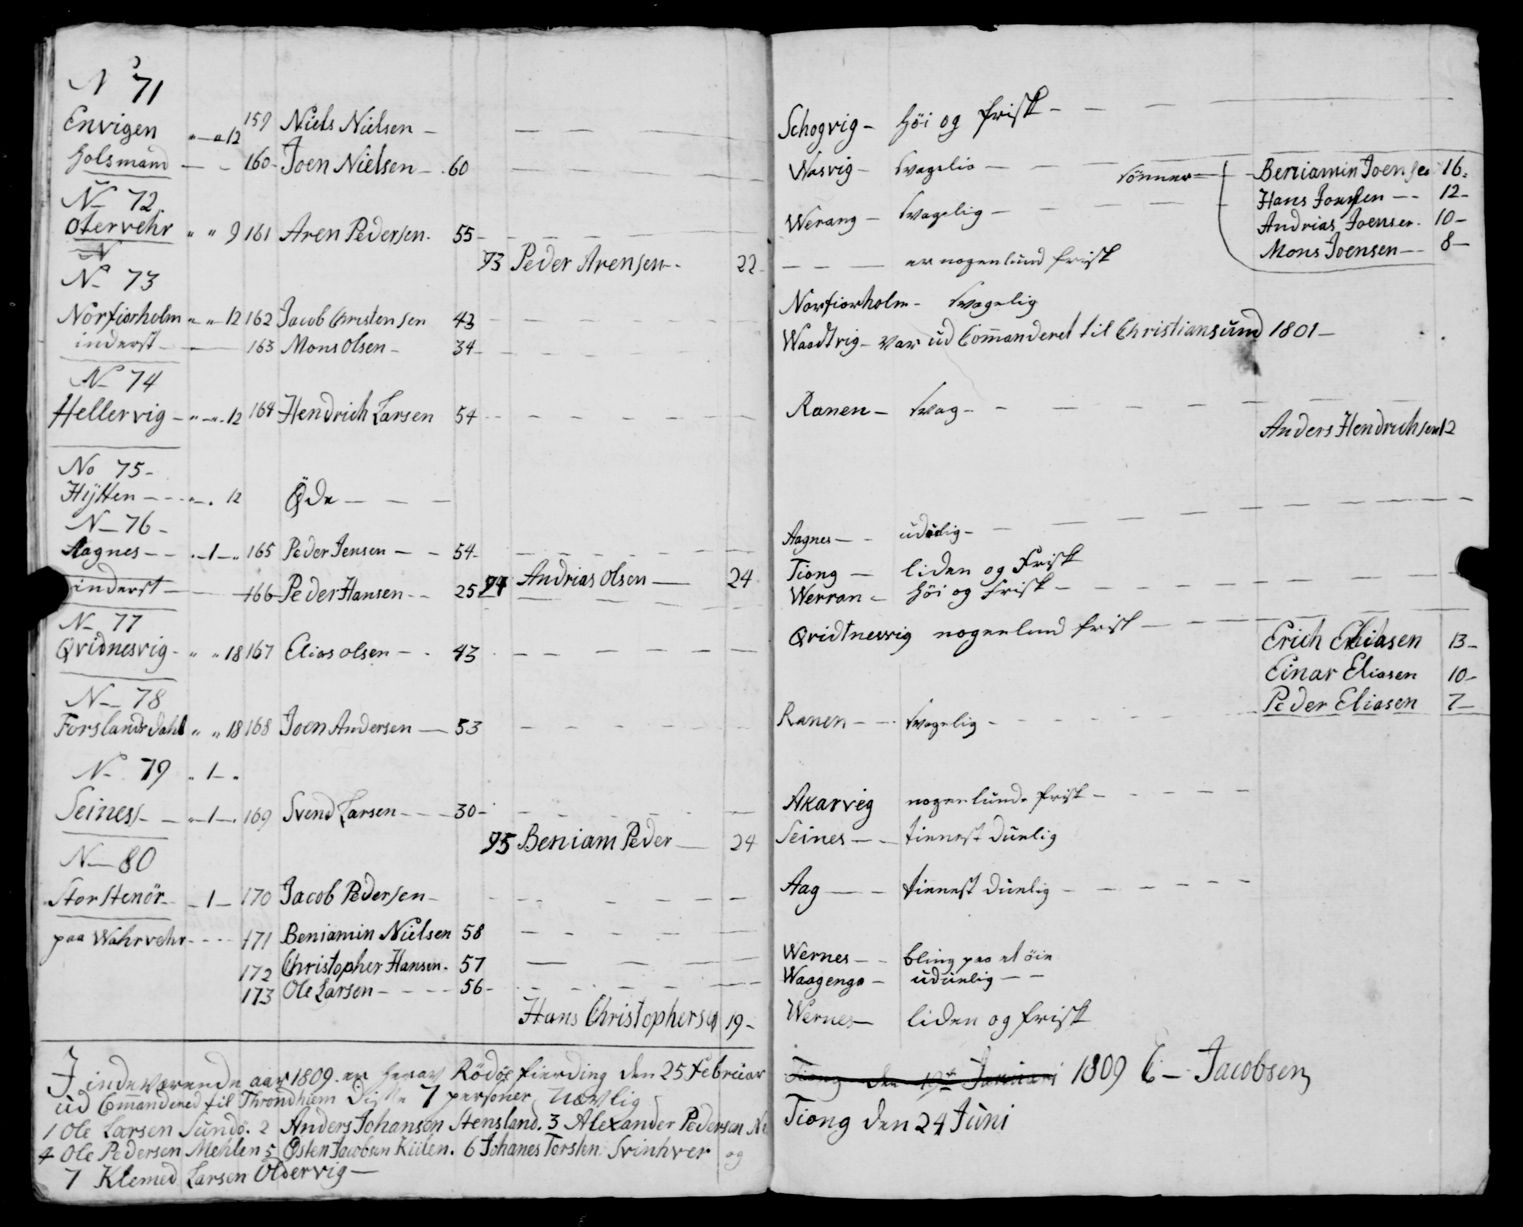 N 71
Envigen 12 159 Niels Nielsen — Schogvig — höi og frisk —
holsmand — 160 Joen Nielsen — 60 Wasvig — svagelig — Sönner — Beniamin Joensen 16
N 72 Hans Joensen — 12
Otervehr " " 9 161 Aren Pedersen 55 Werang — svagelig — Andrias Joensen 10
93 Peder Arensen 22 er nogenlund frisk Mons Joensen — 8
N 73
Norfiorholm " " 12 162 Jacob Christensen 43 Norfiorholm — svagelig
inderst — 163 Mons Olsen — 34 Waadtvig — var ud Commanderet til Christiansund 1801 —
N 74
Hellervig — " — " 12 164 Hendrich Larsen 54 Ranen — svag — Anders Hendrichsen 12
No 75
Hÿtten — 12 Öde —
N 76
Aagnes — 1 — 165 Peder Jensen — 54 Aagnes — udüelig —
94 Andrias Olsen — 24 Tiong — liden og Frisk
inderst — 166 Peder Hansen — 25 Werran — höi og frisk —
N 77
Qvidnesvig — " " 18 167 Elias Olsen — 43 Qvidtnesvig nogenlund frisk — Erich Eliasen 13
Einar Eliasen 10
Peder Eliasen 7
N 78
Forslands Dahl " " 18 168 Joen Andersen — 53 Ranen — svagelig —
N 79 " 1 "
Seines — " 1 — 169 Svend Larsen — 30 Akarvig nogenlunde frisk —
95 Beniam Peder — 24 Seines — tienest düelig
N 80
Stor Stenör — 1 — 170 Jacob Pedersen — Aag — tienest düelig —
paa Wahrvehr — 171 Beniamin Nielsen 58 Wernes — bling paa et öie
172 Christopher Hansen 57 Waagenge — udüelig —
173 Ole Larsen — 56
Hans Christophersen 19 Wernes — liden og frisk
I indeværende aar 1809 er herav Rödöe fierding den 25 Februar
ud Commandered til Throndhiem Disse 7 personer Navlig
1 Ole Larsen Sundö. 2 Anders Johansen Stensland. 3 Alexander Pedersen
4 Ole Pedersen Mehlen 5 Östen Jacobsen Kiilen. 6 Johanes Torsten Svinhver og
7 Klemed Larsen Oldervig —
Tiong den 19de Januari 1809 C — Jacobsen
Tiong den 24 Juni